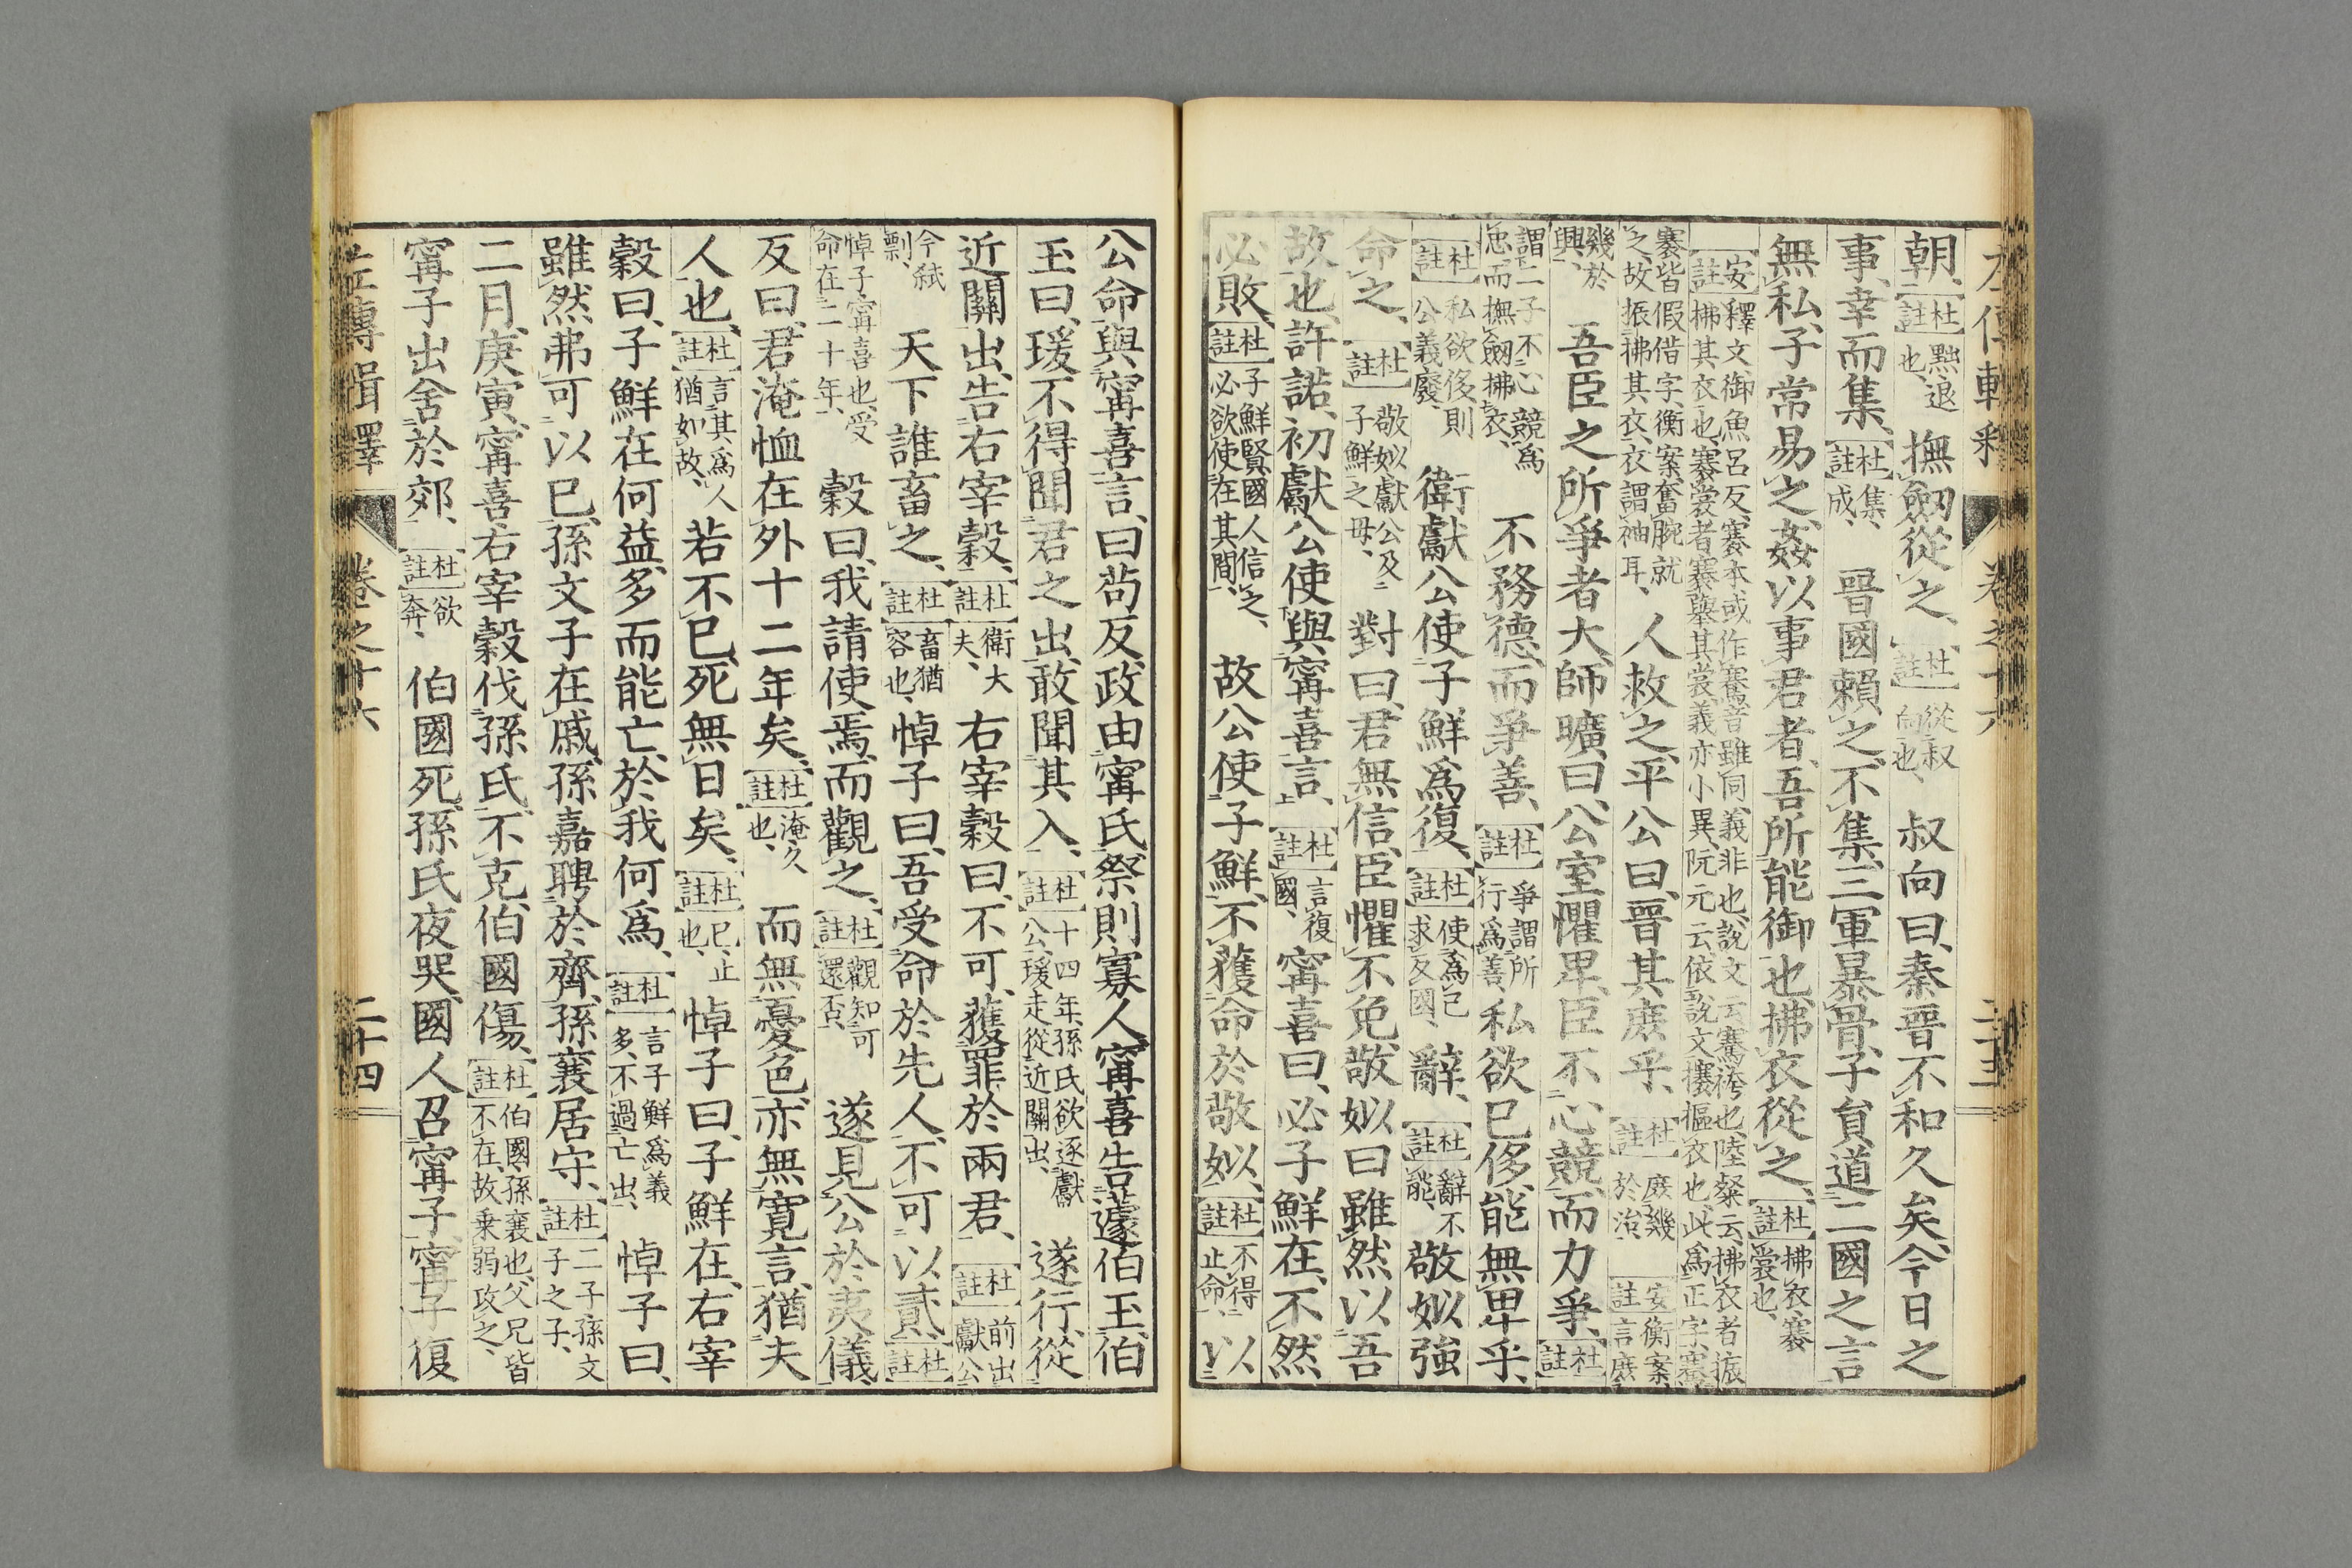 左傳輯釋 卷之十六 二十三
朝、【杜註】黜、退也、撫劒從之、【杜註】從叔向也、叔向曰、秦晉不和久矣、今日之
事、幸而集、【杜註】集、成、晉國賴之、不集、三軍暴骨、子員道二國之言
無私、子常易之、姦以事君者、吾所能御也、拂衣從之、【杜註】拂衣、褰裳也、
【安註】釋文、御魚呂反、褰本或作騫、音雖同、義非也、說文云、騫、袴也、陸粲云、拂衣者振拂其衣也、褰裳者褰擧其裳、義亦小異、阮元云、依說文攓摳衣也、此爲正字、褰騫皆假借字、衡案、奮腕就之、故振拂其衣、衣謂袖耳、
人救之、平公曰、晉其庶乎、【杜註】庶幾於治、【安註】衡案、言庶幾於興、
吾臣之所爭者大、師曠曰、公室懼卑、臣不心競、而力爭、【杜註】謂二子不心競爲忠、而撫劒拂衣、
不務德、而爭善、【杜註】爭謂所行爲善、私欲已侈、能無卑乎、
【杜註】私欲侈、則公義廢、衛獻公使子鮮爲復、【杜註】使爲已求反國、辭、【杜註】辭不能、敬姒強
命之、【杜註】敬姒、獻公及子鮮之母、對曰、君無信、臣懼不免、敬姒曰、雖然、以吾
故也、許諾、初獻公使與寗喜言、【杜註】言復國、寗喜曰、必子鮮在、不然
必敗、【杜註】子鮮賢、國人信之、必欲使在其間、故公使子鮮、不獲命於敬姒、【杜註】不得止命、以
公命與寗喜言、曰、茍反、政由寗氏、祭則寡人、寗喜告蘧伯玉、伯
玉曰、瑗不得聞君之出、敢聞其入、【杜註】十四年、孫氏欲逐獻公、瑗走從近關出、遂行、從
近關出、告右宰穀、【杜註】衛大夫、右宰穀曰、不可、獲罪於兩君、【杜註】前出獻公今弑剽、
天下誰畜之、【杜註】畜猶容也、悼子曰、吾受命於先人、不可以貳、【杜註】悼子、寗喜也、受命在二十年、
穀曰、我請使焉、而觀之、【杜註】觀知可還否、遂見公於夷儀、
反曰、君淹恤在外十二年矣、【杜註】淹、久也、而無憂色、亦無寛言、猶夫
人也、【杜註】言其爲人猶如故、若不已、死無日矣、【杜註】已、止也、悼子曰、子鮮在、右宰
穀曰、子鮮在何益、多而能亡、於我何爲、【杜註】言子鮮爲義多、不過亡出、悼子曰、
雖然弗可以已、孫文子在戚、孫嘉聘於齊、孫襄居守、【杜註】二子、孫文子之子、
二月、庚寅、寗喜右宰穀伐孫氏、不克、伯國傷、【杜註】伯國、孫襄也、父兄皆不在、故乗弱攻之、
寗子出舍於郊、【杜註】欲奔、伯國死、孫氏夜哭、國人召寗子、寗子復
左傳輯釋 卷之十六 二十四